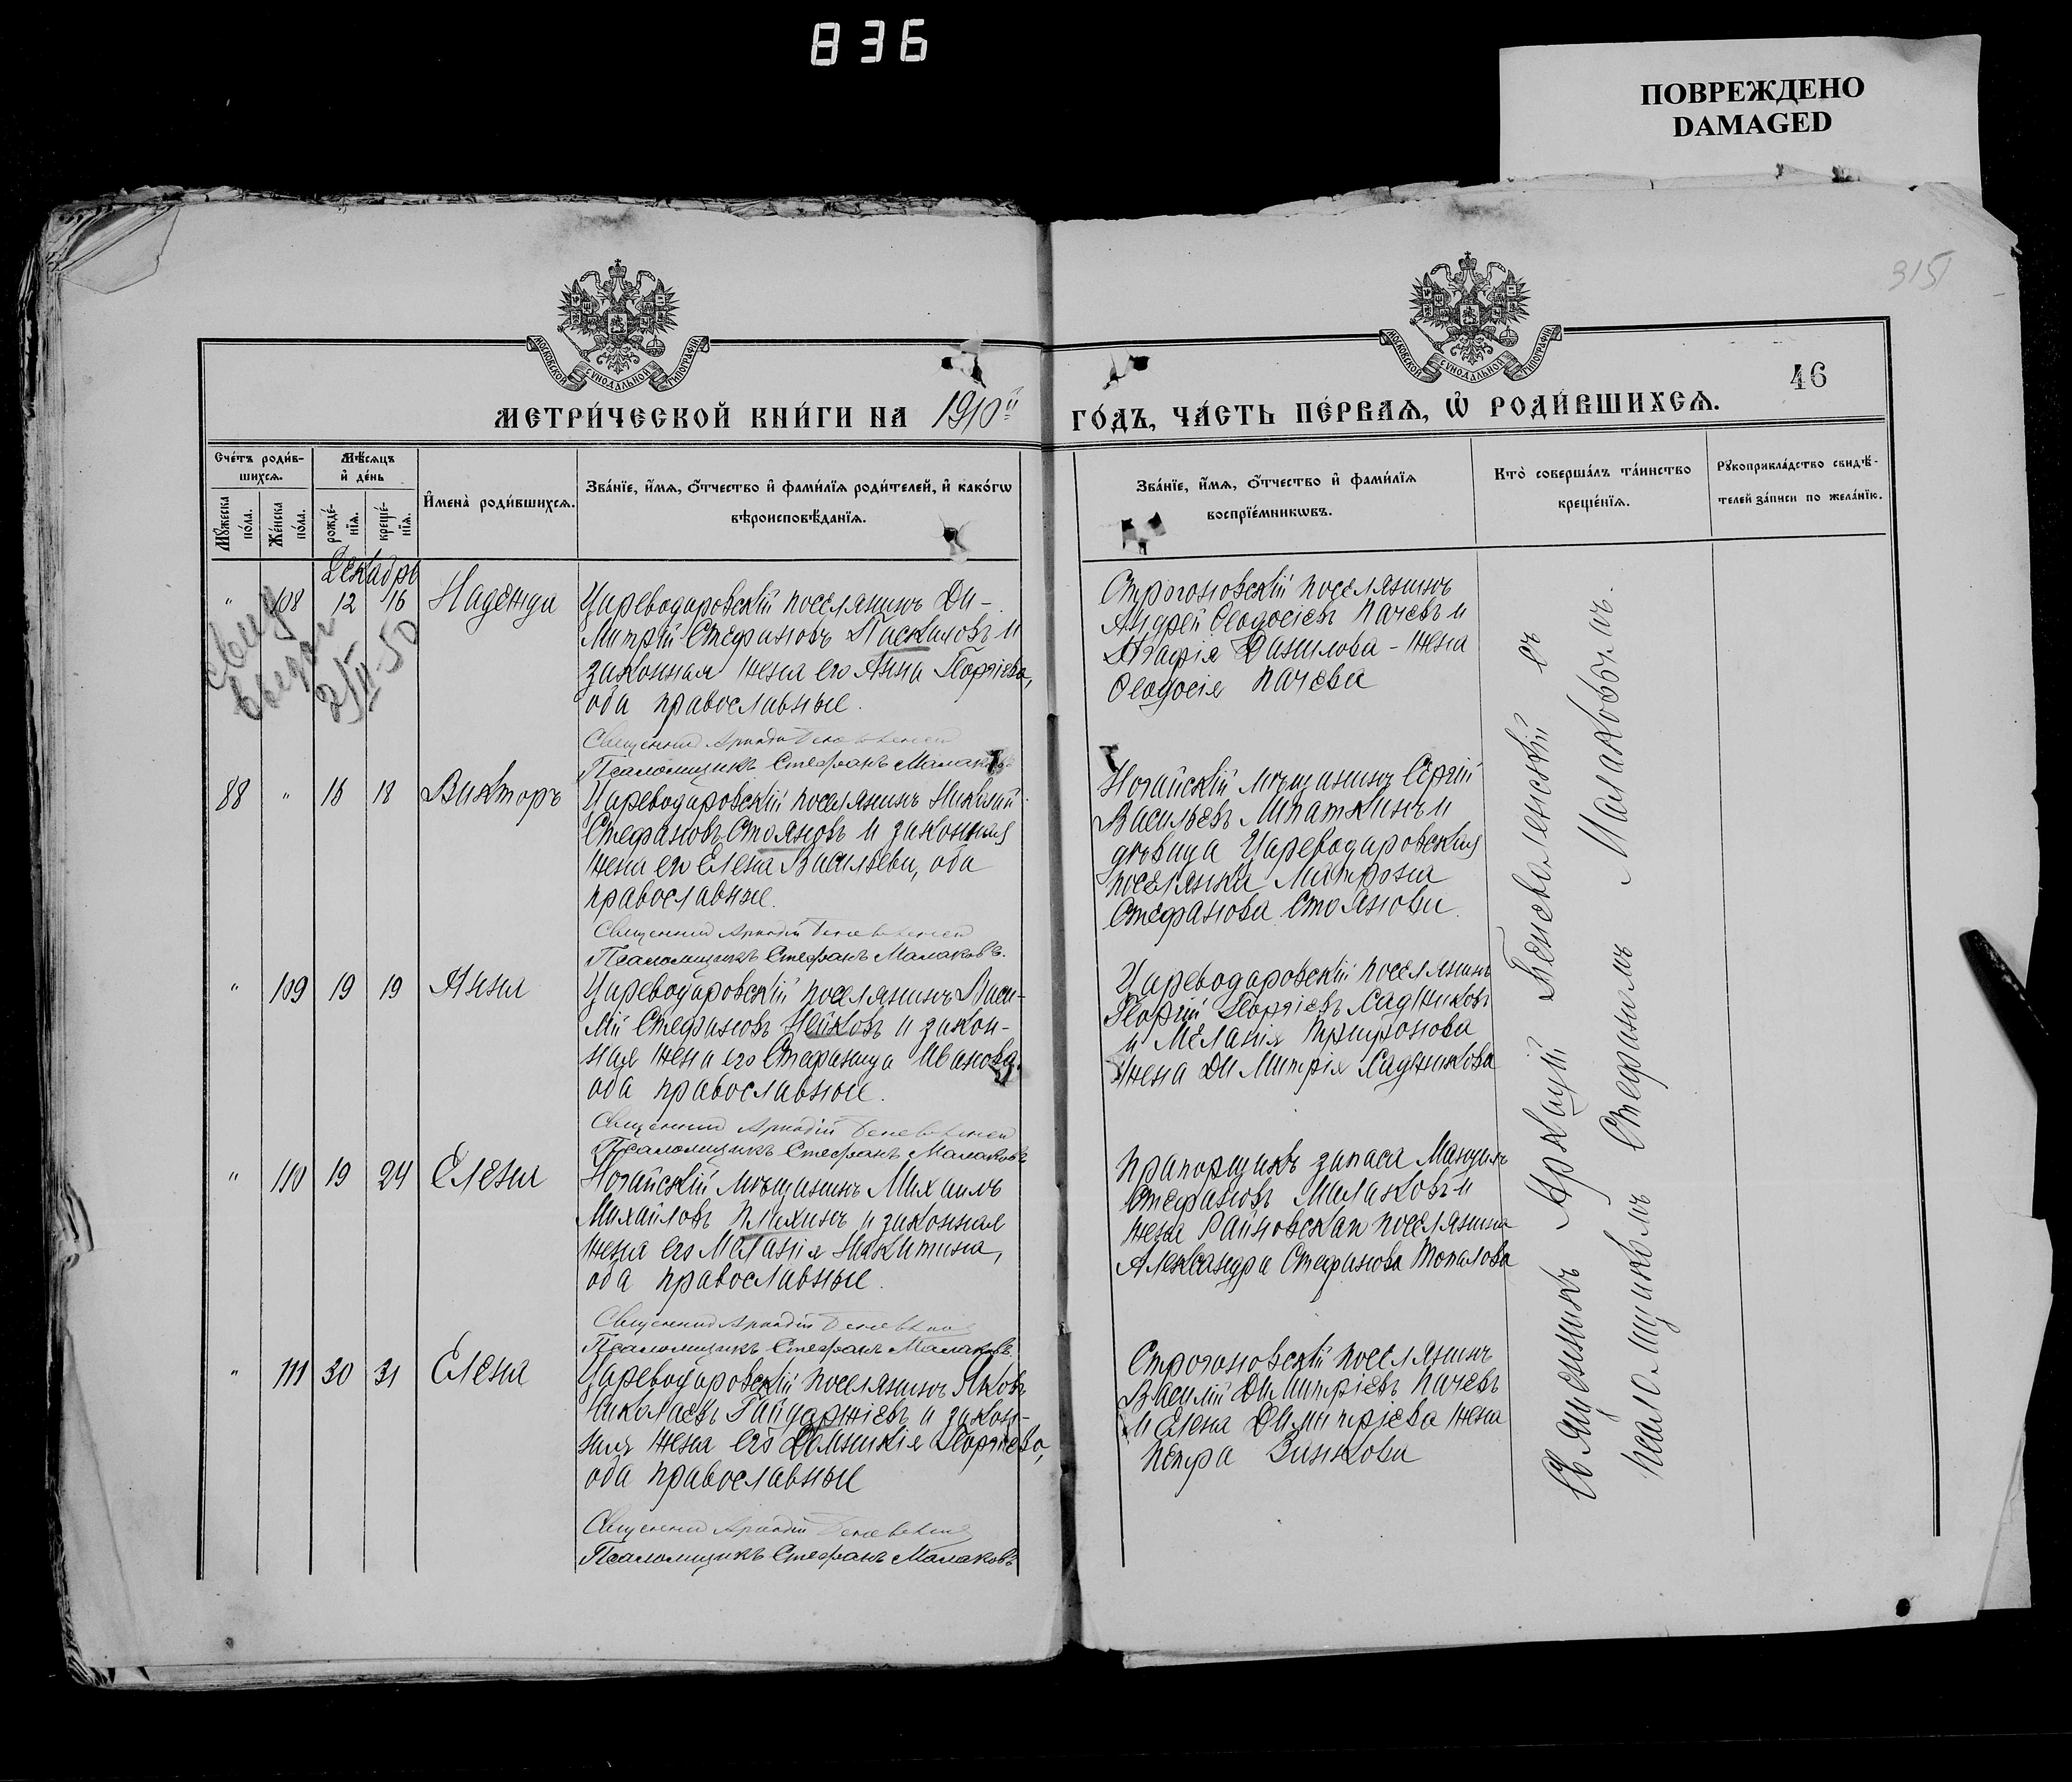 836
ПОВРЕЖДЕНО
DAMAGED
315
МОСКОВСКОЙ СѴНОДАЛЬНОЙ ТИПОГРАФІИ
МОСКОВСКОЙ СѴНОДАЛЬНОЙ ТИПОГРАФІИ
46
МЕТРИ́ЧЕСКОЙ КНИ́ГИ НА 1910й ГО́ДЪ, ЧА́СТЬ ПЕ́РВАѦ, Ѡ РОДИ́ВШИХСѦ.
Сче́тъ роди́в-
шихсѧ.
Мꙋ́жеска
по́ла.
Же́нска
по́ла.
Мѣ́сѧцъ
и҆ де́нь
рожде́-
нїѧ.
креще́-
нїѧ.
И҆мена̀ роди́вшихсѧ.
Зва́нїе, и҆́мѧ, ѻ҆́тчество и҆ фами́лїѧ роди́телей, и҆ како́гѡ
вѣроисповѣ́данїѧ.
Зва́нїе, и҆́мѧ, ѻ҆́тчество и҆ фами́лїѧ
воспрїе́мникѡвъ.
Кто̀ соверша́лъ та́инство
креще́нїѧ.
Рꙋкоприкла́дство свидѣ́-
телей за́писи по жела́нїю.
Декабрь
" 108 12 16 Надежда
Свид
выдан
2/II-50
Цареводаровскій поселянинъ Ди-
митрій Стефановъ Паскаловъ и
законная жена его Анна Георгіева,
оба православные.
Священник Аркадій Беневоленскій
Псаломщикъ Стефанъ Малаковъ
Строгоновскій поселянинъ
Андрей Ѳеодосіевъ Пачевъ и
Агафія Данилова - жена
Ѳеодосія Пачева
88 " 16 18 Викторъ
Цареводаровскій поселянинъ Николай
Стефановъ Стояновъ и законная
жена его Елена Васильева, оба
православные.
Священник Аркадій Беневоленскій
Псаломщикъ Стефанъ Малаковъ.
Ногайскій мѣщанинъ Сергій
Васильевъ Липаткинъ и
дѣвица Цареводаровская
поселянка Матрона
Стефанова Стоянова.
" 109 19 19 Анна
Цареводаровскій поселянинъ Васи-
лій Стефановъ Нейковъ и закон-
ная жена его Стефанида Иванова.
оба православные.
Священник Аркадій Беневоленскій
Псаломщикъ Стефанъ Малаковъ
Цареводаровскій поселянинъ
Георгій Георгіевъ Хаджиковъ
и Меланія Трифонова
жена Димитрія Хаджикова
" 110 19 24 Елена
Ногайскій мѣщанинъ Михаилъ
Михайловъ Плихинъ и законная
жена его Меланія Никитина,
оба православные.
Священник Аркадій Беневоленскій
Псаломщикъ Стефанъ Малаковъ.
Прапорщикъ запаса
Стефановъ Малаковъ и
жена Райновскаго поселянина
Александра Стефанова Топалова
" 111 30 31 Елена
Цареводаровскій поселянинъ Яковъ
Николаевъ Гайдаржіевъ и закон-
ная жена его Домникія Георгіева,
оба православные
Священник Аркадій Беневоленскій
Псаломщикъ Стефанъ Малаковъ
Строгоновскій поселянинъ
Василій Димитріевъ Пачевъ
и Елена Димитріева жена
Петра Занкова
Священникъ Аркадій Беневоленскій съ
псаломщикомъ Стефаномъ Малаковымъ.